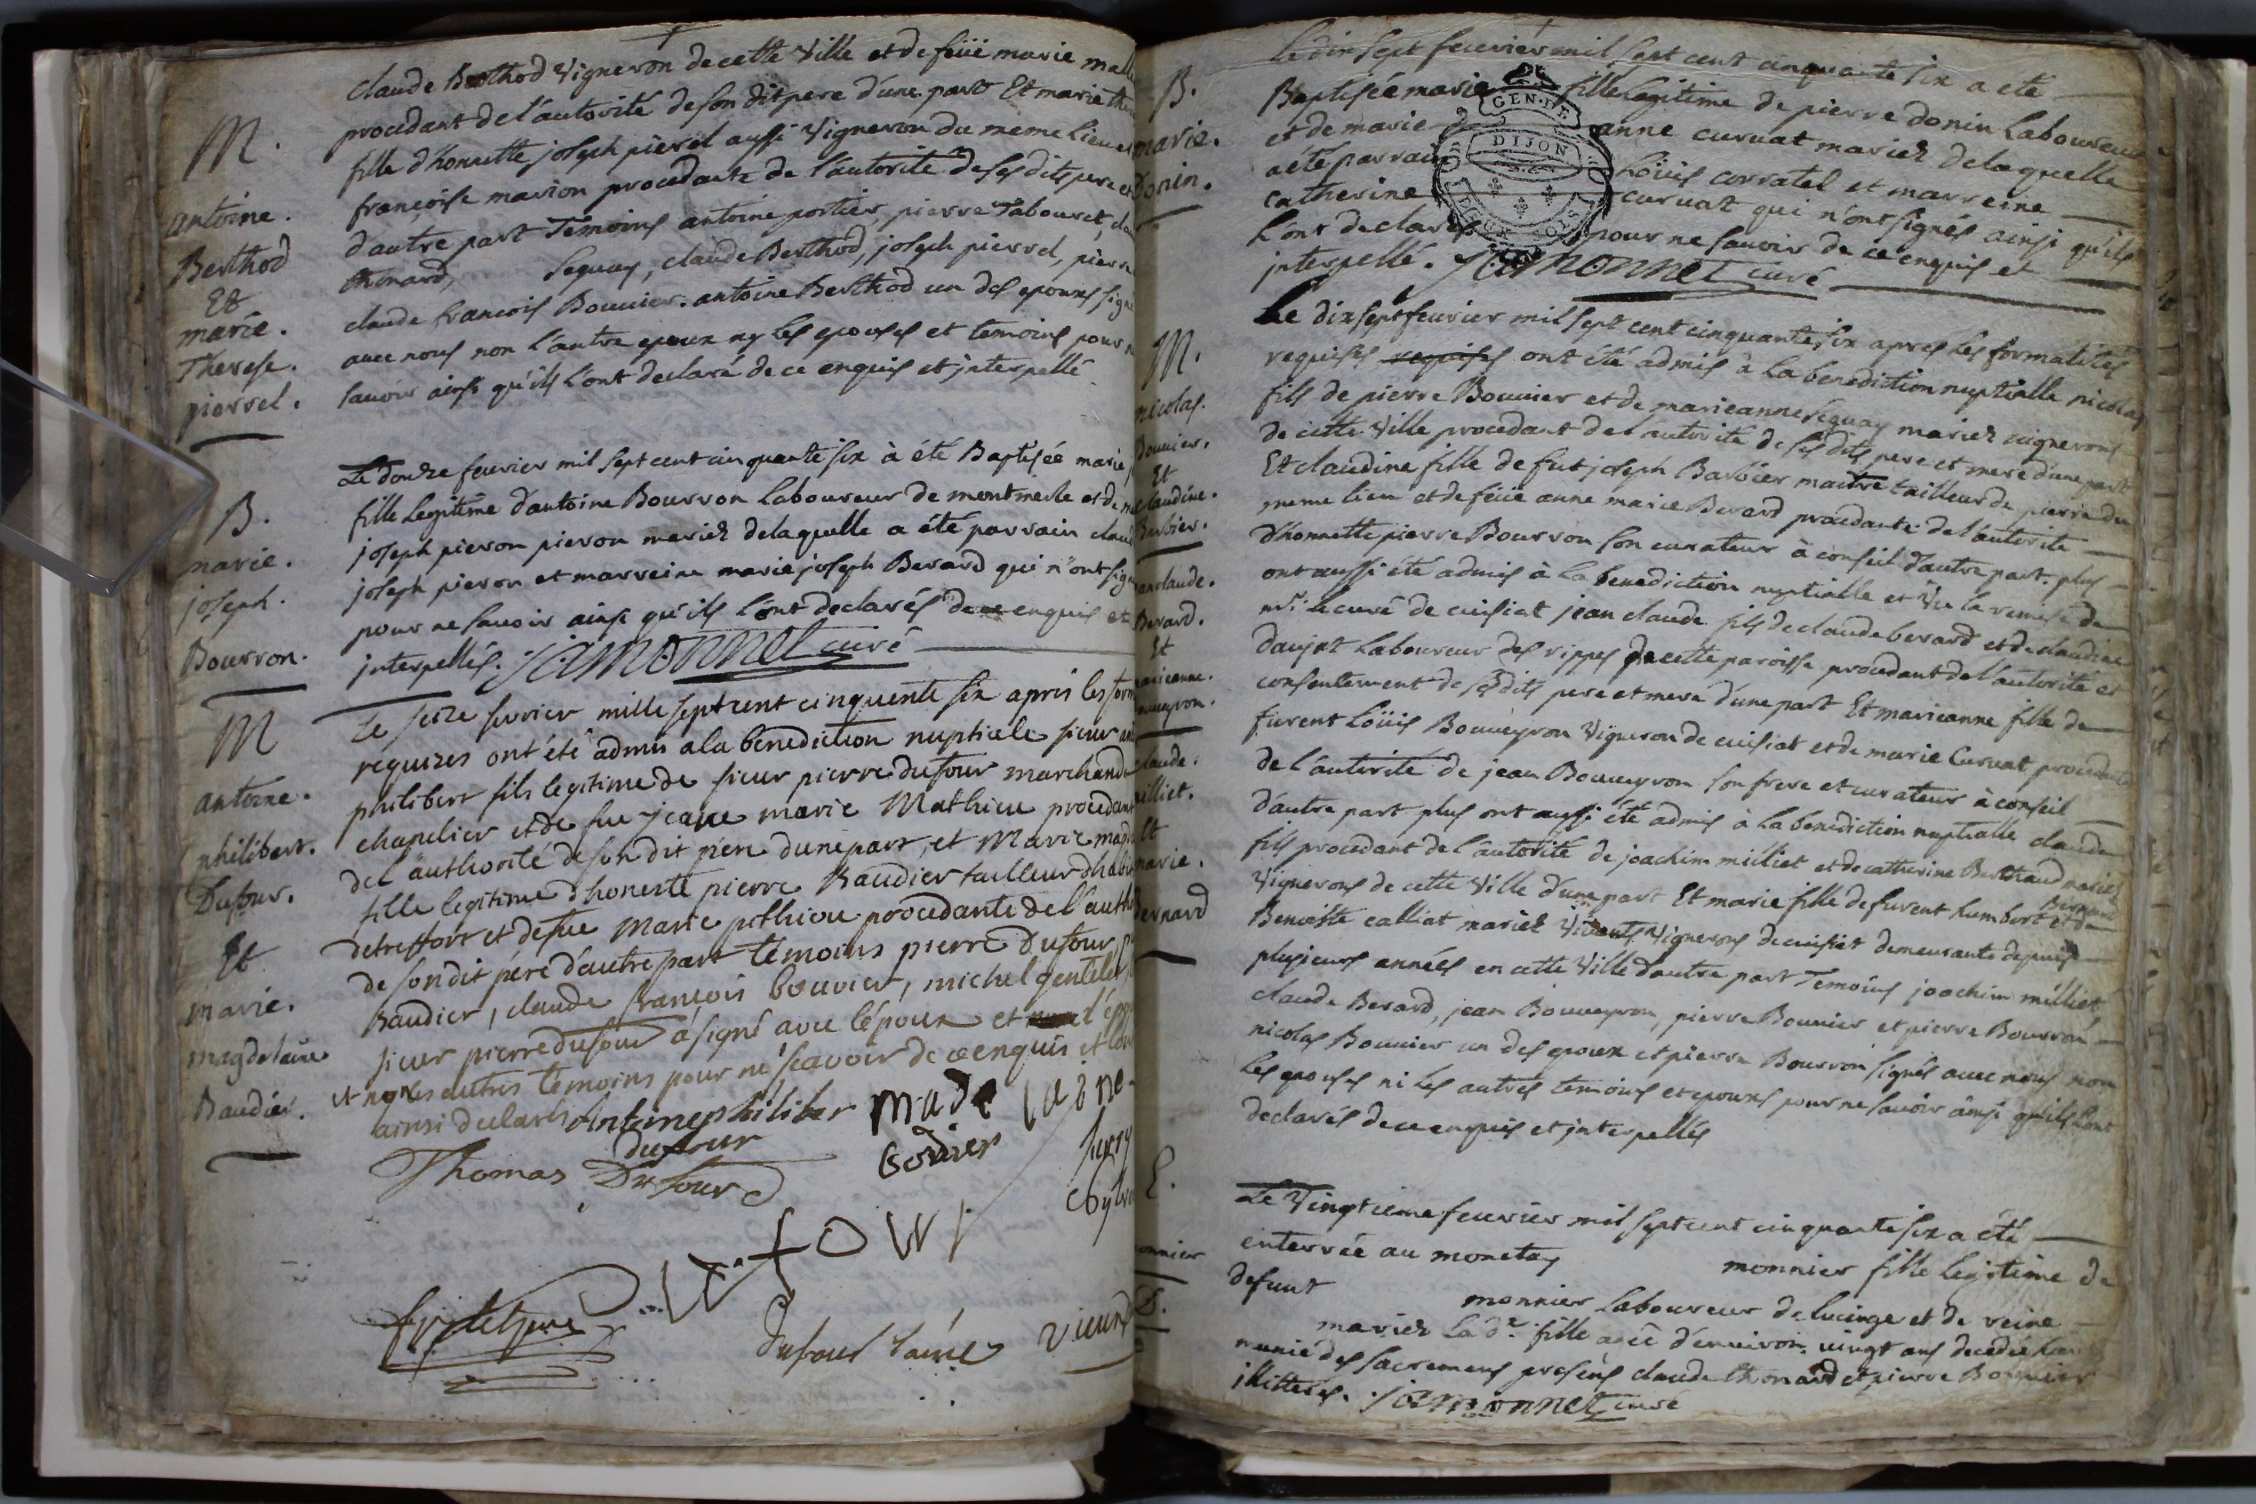 M.
antoine.
Berthod
Et
marie.
Therese.
pierrel.
claude Berthod Vigneron de cette Ville et de feüe marie
procedant de l'autorité de son dit pere d'une part Et marie
fille d'honnette joseph pierrel aussi Vigneron du meme lieu
françoise marion procedante de l'autorité de ses dits pere et
d'autre part Temoins antoine portier, pierre Tabouret,
thenard, Seguay, claude Berthod, joseph pierrel, pierre
claude francois Bouuier. antoine Berthod un des epoux
auec nous non l'autre epoux ny les epouses et temoins pour
sauoir ainsi qu'ils l'ont declaré de ce enquis et interpellé
B.
marie.
joseph.
Bourron.
Le douze feurier mil sept cent cinquante six à été Baptisée marie
fille legitime d'antoine Bourron laboureur de montmerle et de
joseph pieron pieron mariez delaquelle a été parrain
joseph pieron et marreine marie joseph Berard qui n'ont
pour ne sauoir ainsi qu'ils l'ont declarés de ce enquis et
interpellés. jamonnet curé
M
antoine.
philibert.
Dufour.
Et
marie.
magdelaine
Baudier.
Le seize fevrier mille sept cent cinquente six apris les
requizes ont été admis a la benediction nuptiale sieur
philibert fils legitime de sieur pierre dufour marchand
chapelier et de fue jeane marie Mathieu procedant
del authorité de son dit pere dune part, et Marie
fille legitime d'honeste pierre Baudier tailleur
detreffort et defue Marie pithiou procedante de l'
de son dit pere d'autre part temoins pierre Dufour,
Baudier, claude françois bouvier, michel gentelet,
sieur pierre dufour a signé avec l'époux et
et non les autres temoins pour ne scavoir de ce enquis et
ainsi declarés Antoine philiber made laine
dufour Godier
Thomas Dufour
dufour l'ainé
B.
marie.
Donin.
Le dix sept feurier mil sept cent cinquante six a été
Baptisée marie fille legitime de pierre donin laboureur
et de marie anne curuat mariez delaquelle
a été parrain Loüis corratel et marreine
catherine curuat qui n'ont signés ainsi qu'ils
l'ont declarés pour ne sauoir de ce enquis et
interpellé. jamonnet curé
GEN. DE
DIJON
DEUX SOLS
M.
nicolas.
Bouuier.
Et
claudine.
Barbier.
jean claude.
Berard.
Et
marieanne.
claude.
milliet.
Et
marie.
Bernard
Le dix sept feurier mil sept cent cinquante six apres les formalités
requises requises ont été admis à la benediction nuptialle nicolas
fils de pierre Bouuier et de marieanne Seguay mariez vignerons
de cette Ville procedant de l'autorité de ses dits pere et mere d'une part
Et claudine fille de fut joseph Barbier maitre tailleur de pierre du
meme lieu et de feüe anne marie Berard procedante de l'autorite
d'honnette pierre Bourron son curateur à conseil d'autre part. plus
ont aussi été admis à la benediction nuptialle et Vu la remise de
mr. le curé de cuisiat jean claude fils de claude berard et de claudine
daujat laboureur des rippes de cette paroisse procedant de l'autorité et
consentement de ses dits pere et mere d'une part Et marieanne fille de
furent Loüis Bouueyron Vigneron de cuisiat et de marie Curuat procedante
de l'autorité de jean Bouueyron son frere et curateur à conseil
d'autre part plus ont aussi été admis a la benediction nuptialle claude
fils procedant de l'autorité de joachim milliet et de catherine Berthaud mariez
Vignerons de cette Ville d'une part Et marie fille de furent humbert Bernard et de
Benoiste calliat mariez Vivants Vignerons de cuisiat demeurante depuis
plusieurs années en cette Ville d'autre part Temoins joachim milliet,
claude Berard, jean Bouueyron, pierre Bouuier et pierre Bourron
nicolas Bouuier un des epoux et pierre Bourron signés auec nous non
les epouses ni les autres temoins et epoux pour ne sauoir ainsi qu'ils l'ont
declarés de ce enquis et interpellés
E.
monnier
D.
Le Vingtieme feurier mil sept cent cinquante six a été
enterrée au monetay monnier fille legitime de
defunt monnier laboureur de lucinge et de reine
mariez la de. fille agée d'enuiron vingt ans decedée
munie des sacremens presens claude thenard et pierre Bouuier
illitterés. jamonnet curé